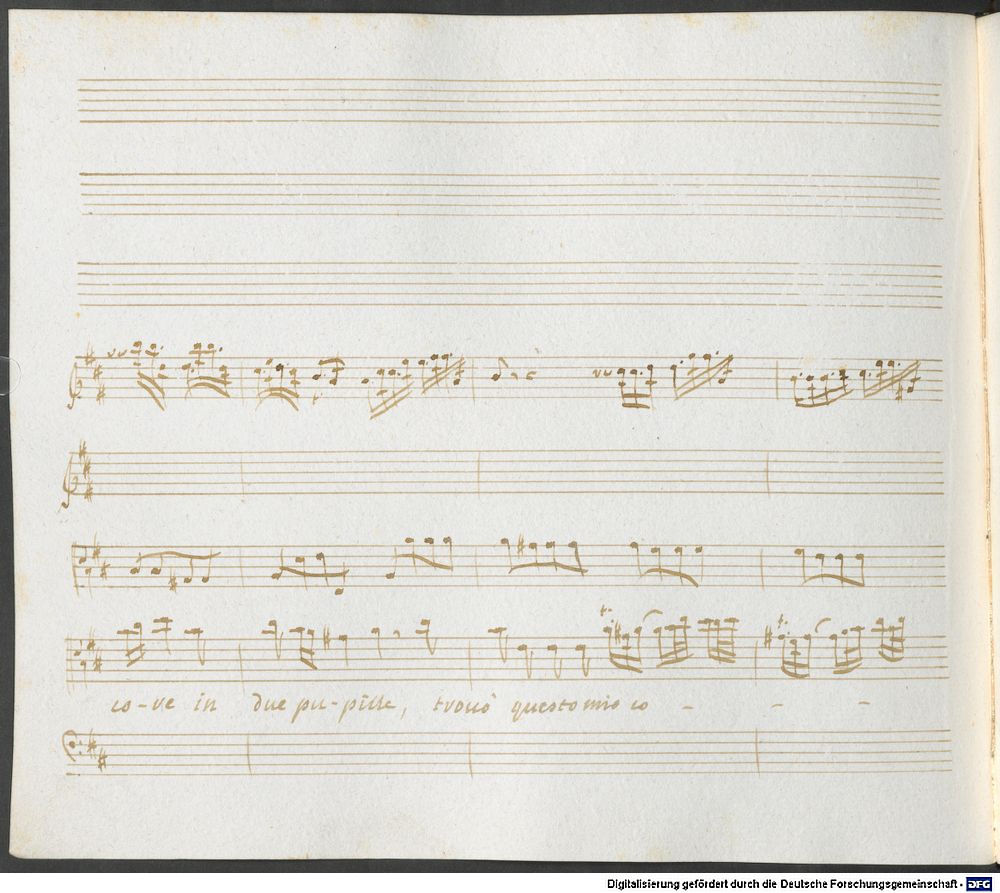 co-re in due pu-pille, trovò questo mio co - - -
Digitalisierung gefördert durch die Deutsche Forschungsgemeinschaft - DFG